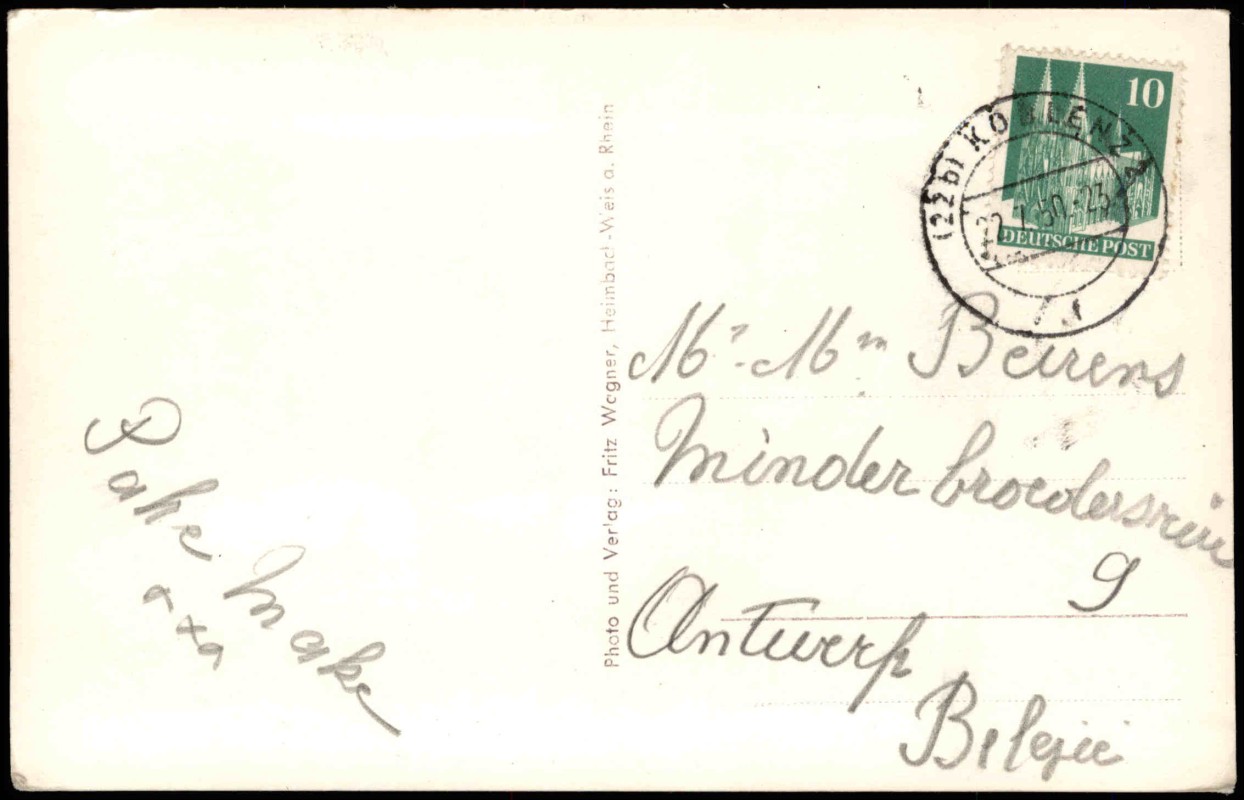 10
DEUTSCHE POST
(22b) KOBLENZ 2
.7.50.-23
Photo und Verlag: Fritz Wegner, Heimbach-Weis a. Rhein
Mr-Mm Beirens
Minderbroedersrui
9
Antwerp
Belgie
Pake Make